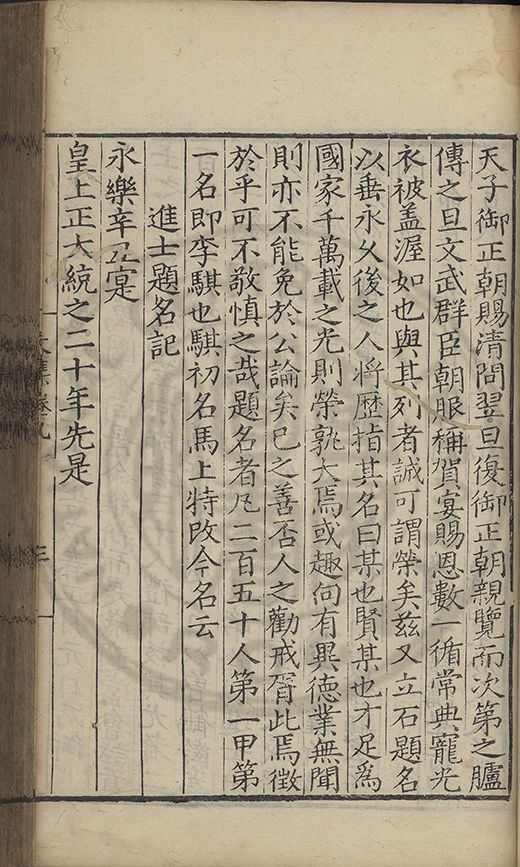 天子御正朝賜清問翌旦復御正朝親覽而次第之臚
傳之旦文武群臣朝服稱賀宴賜恩數一循常典寵光
衣被盖渥如也與其列者誠可謂榮矣兹又立石題名
以垂永久後之人將歷指其名曰某也賢某也才足爲
國家千萬載之光則榮孰大焉或趣向有異德業無聞
則亦不能免於公論矣已之善否人之勸戒胥此焉徵
於乎可不敬慎之哉題名者凡二百五十人第一甲第
一名即李騏也騏初名馬上特改今名云
進士題名記
永樂辛丑寔
皇上正大統之二十年先是
文集卷九
三